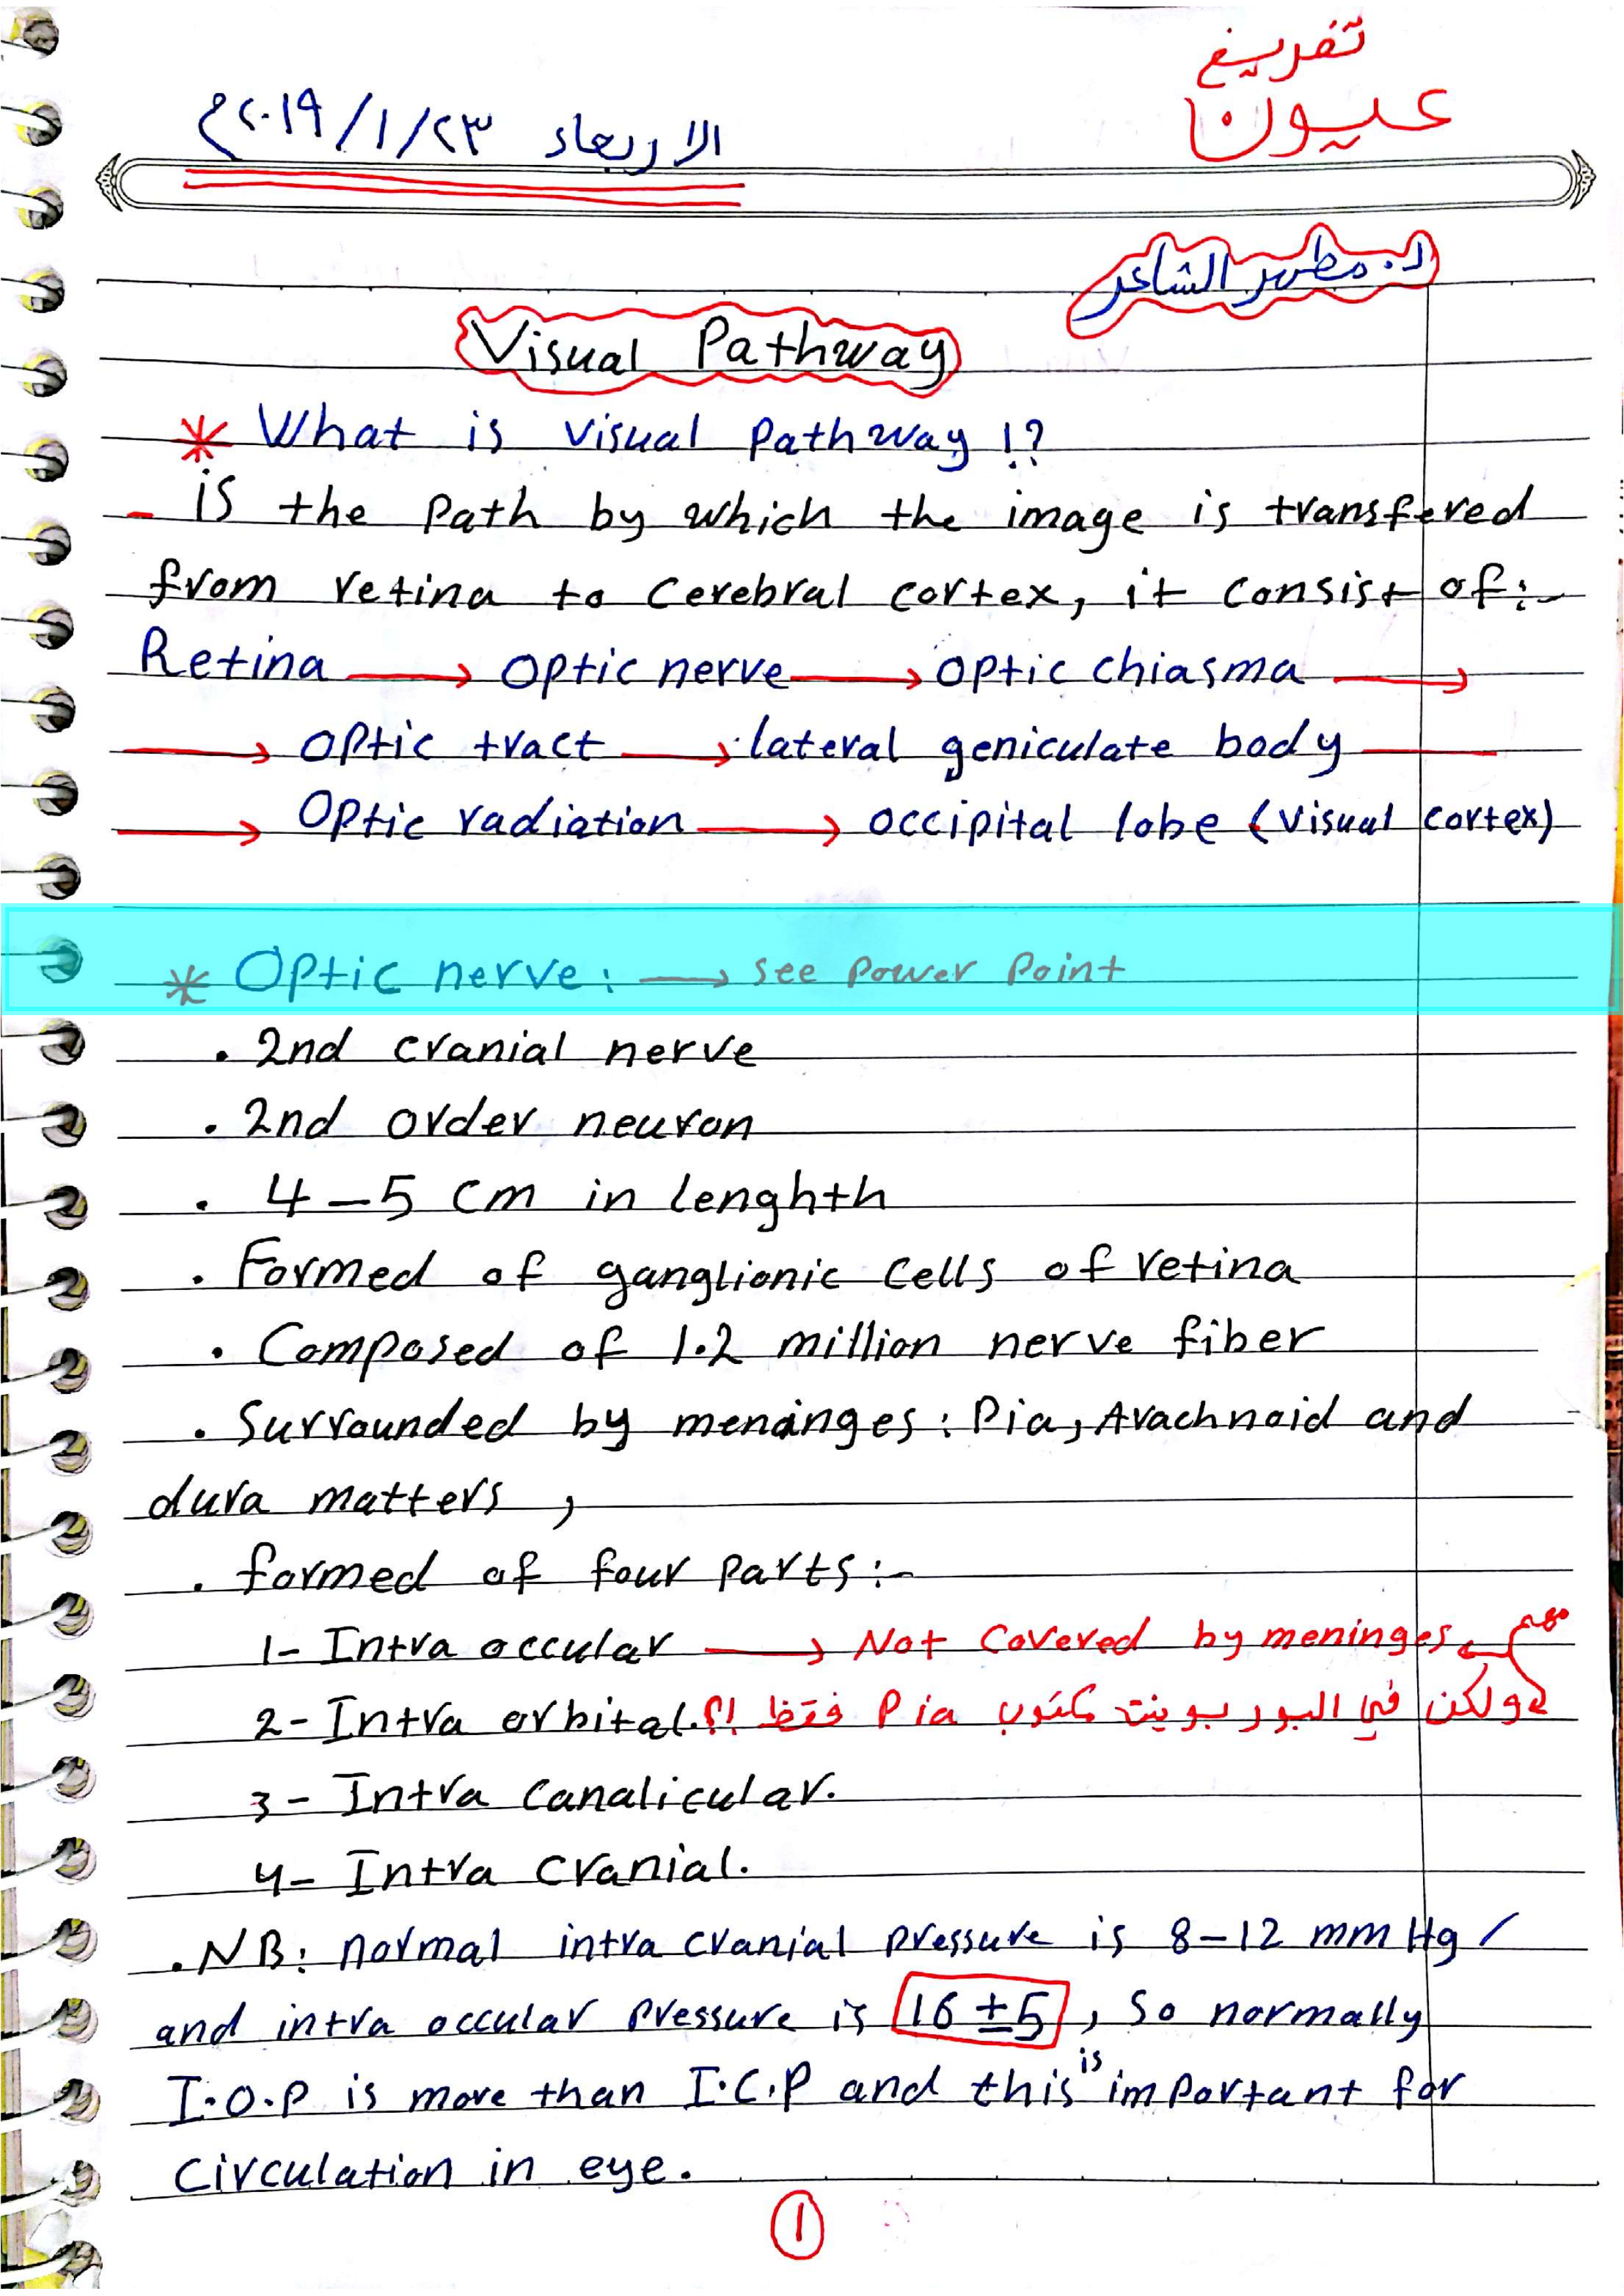 تفريغ
عيون
الاربعاء ٢٠١٩/١/٢٣م
د. مطهر الشاعر
Visual Pathway
* What is visual pathway !?
- is the path by which the image is transfered
from retina to cerebral cortex, it consist of:-
Retina → optic nerve → optic chiasma →
→ optic tract → lateral geniculate body —
→ optic radiation → occipital lobe (visual cortex)
* Optic nerve: → see Power Point
. 2nd cranial nerve
. 2nd order neuron
. 4-5 cm in lenghth
. Formed of ganglionic cells of retina
. Composed of 1.2 million nerve fiber
. Surrounded by meninges: Pia, Arachnoid and
dura matters,
. formed of four parts:-
1- Intra occular → Not covered by meninges مهم
2- Intra orbital. ولكن في البوربوينت مكتوب Pia فقط !؟
3- Intra canalicular.
4- Intra cranial.
. NB: normal intra cranial pressure is 8-12 mmHg /
and intra occular pressure is 16 ± 5, so normally
I.O.P is more than I.C.P and this is important for
circulation in eye.
1